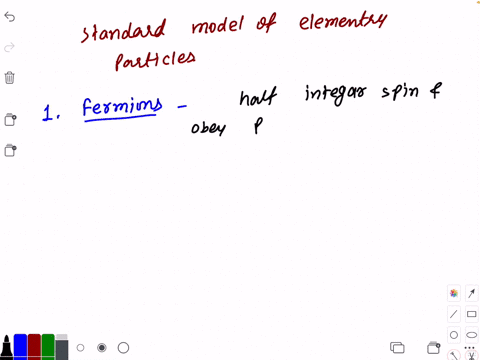 standard model of elementry
particles
1. fermions - half integar spin &
obey P